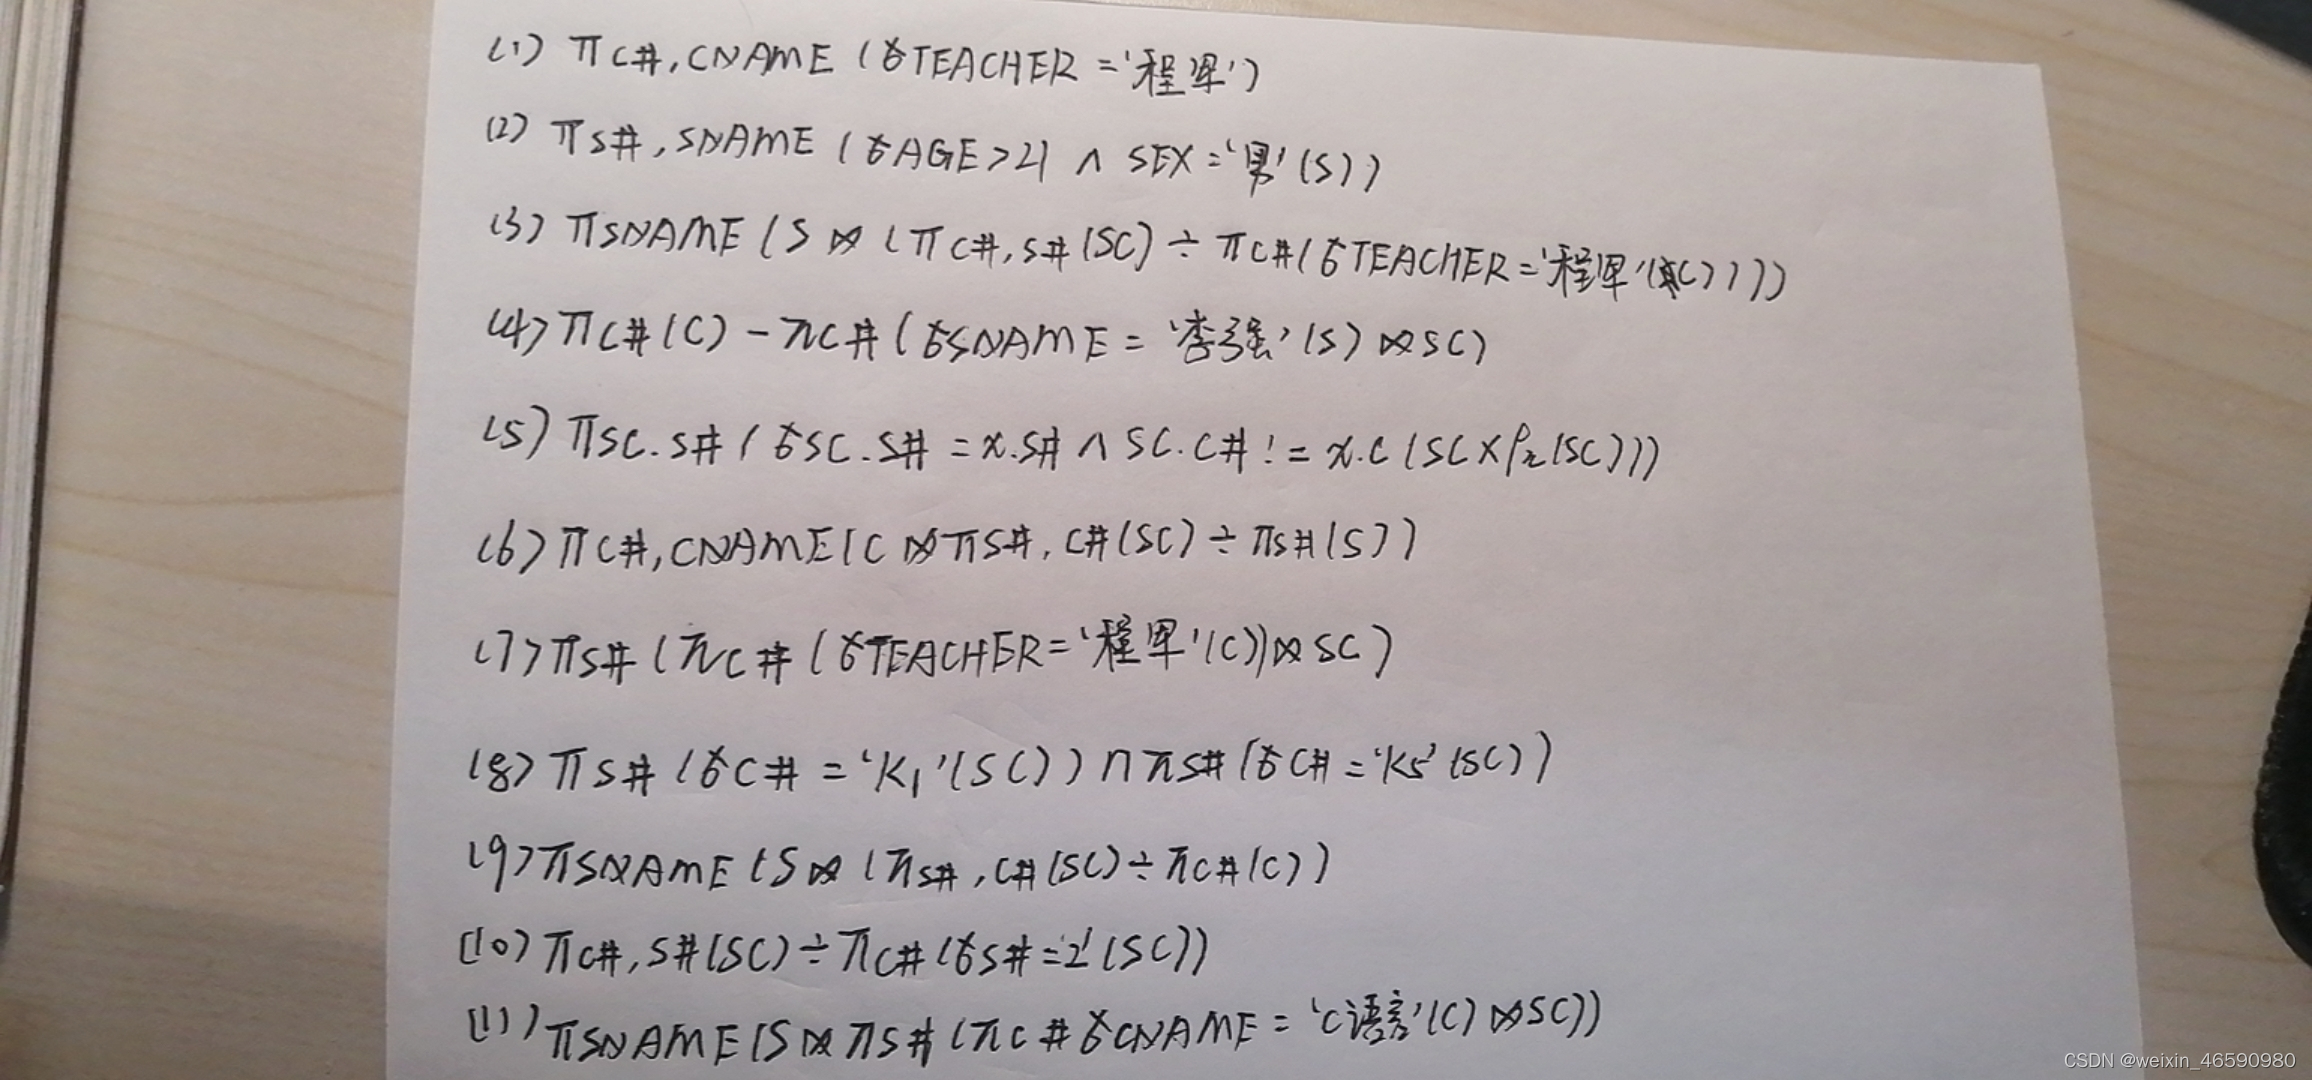 (1) πC#,CNAME (σTEACHER='程军')
(2) πS#,SNAME (σAGE>21 ∧ SEX='男'(S))
(3) πSNAME (S⋈(πC#,S#(SC)÷πC#(σTEACHER='程军'(C))))
(4) πC#(C)-πC#(σSNAME='李强'(S)⋈SC)
(5) πSC.S#(σSC.S#=x.S#∧SC.C#!=x.C(SC×ρx(SC)))
(6) πC#,CNAME(C⋈πS#,C#(SC)÷πS#(S))
(7) πS#(πC#(σTEACHER='程军'(C))⋈SC)
(8) πS#(σC#='K1'(SC))∩πS#(σC#='K5'(SC))
(9) πSNAME(S⋈(πS#,C#(SC)÷πC#(C))
(10) πC#,S#(SC)÷πC#(σS#='2'(SC))
(11) πSNAME(S⋈πS#(πC#σCNAME='C语言'(C)⋈SC))
CSDN @weixin_46590980